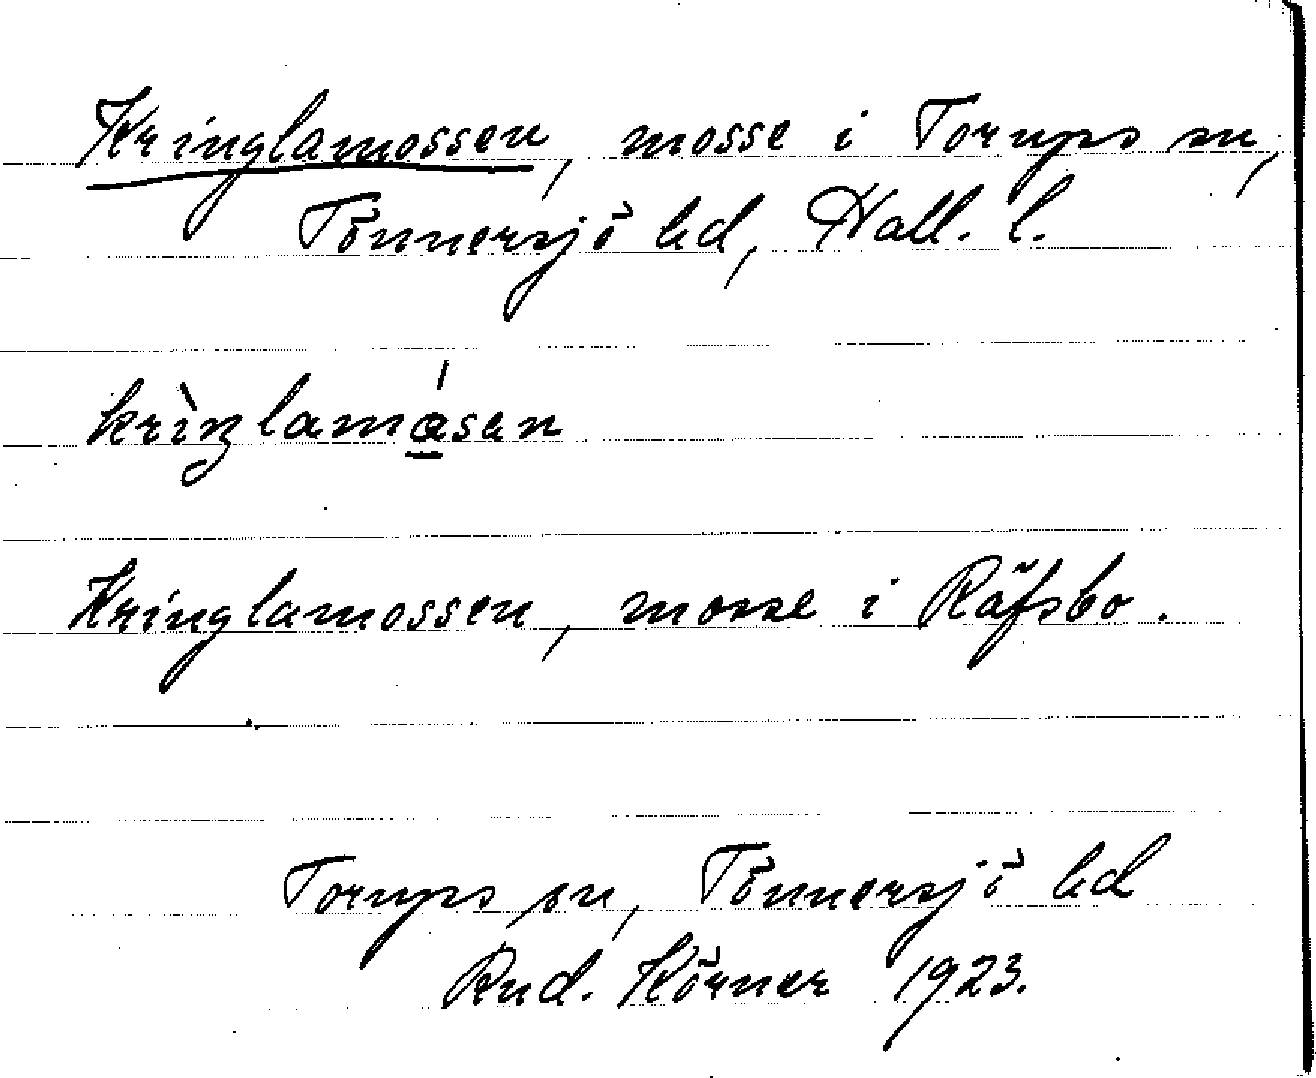 Kringlamossen, mosse i Torups sn,
Tönnersjö hd, Hall. l.
krìŋlamásan
Kringlamossen, mosse i Räfsbo.
Torups sn, Tönnersjö hd
Rud. Körner 1923.